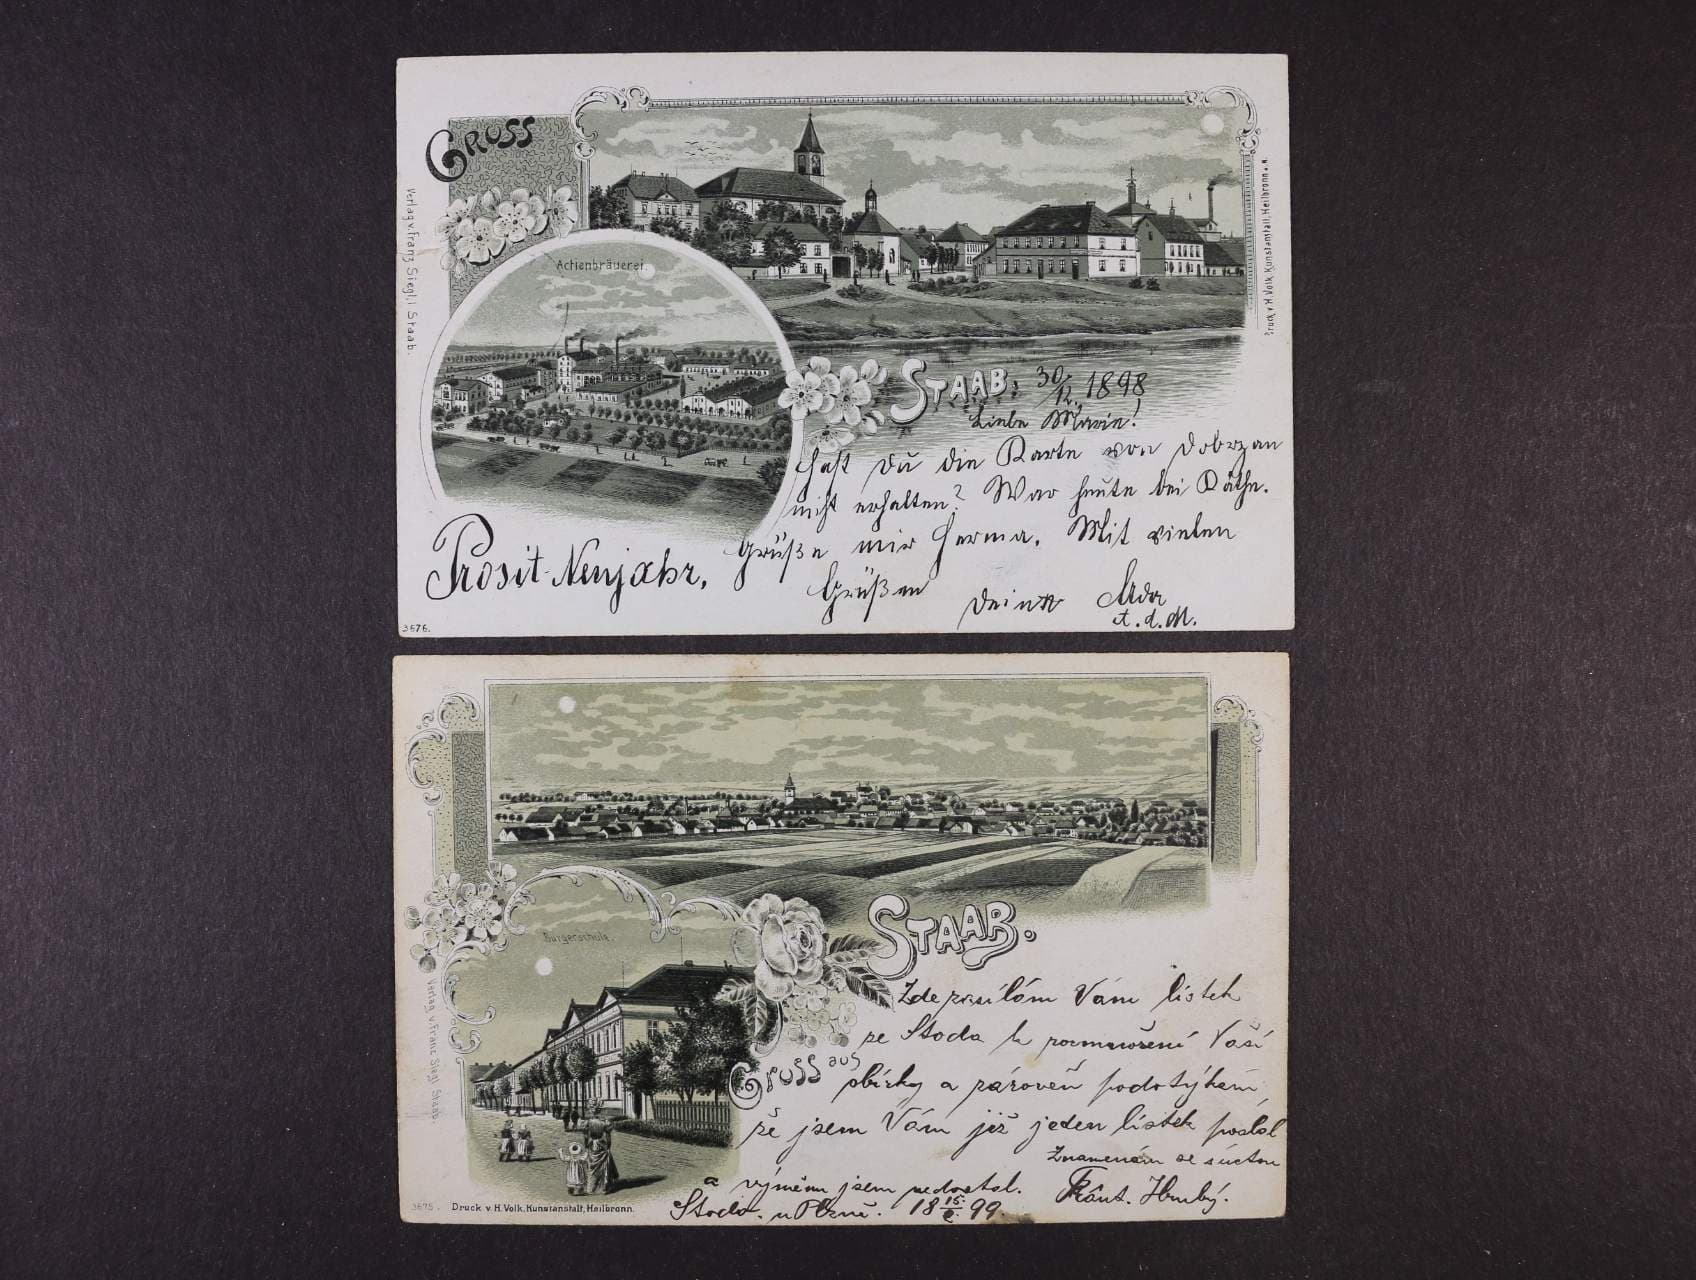 GRUSS
Verlag v. Franz Siegl, i Staab.
Druck v H. Volk, Kunstanstalt, Heilbronn a. N.
Actienbräuerei.
STAAB: 30/12. 1898
Liebe Marie!
Hast Du die Karte von Dobrzan
nicht erhalten? War heute bei Käthe.
Grüße mir Herma. Mit vielen
Grüßen
Prosit-Neujahr,
Deine Ada
t. d. M.
3676.
STAAB.
Bürgerschule.
Verlag v. Franz Siegl Staab.
Gruss aus
Zde posílám Vám lístek
ze Stoda k rozmnožení Vaší
sbírky a zároveň podotýkám
že jsem Vám již jeden lístek poslal
a výměnu jsem nedostal.
Znamenám se súctou
Frant. Hrubý.
Stod. u Plzně. 18 15/2 99.
3675. Druck v. H. Volk, Kunstanstalt, Heilbronn.